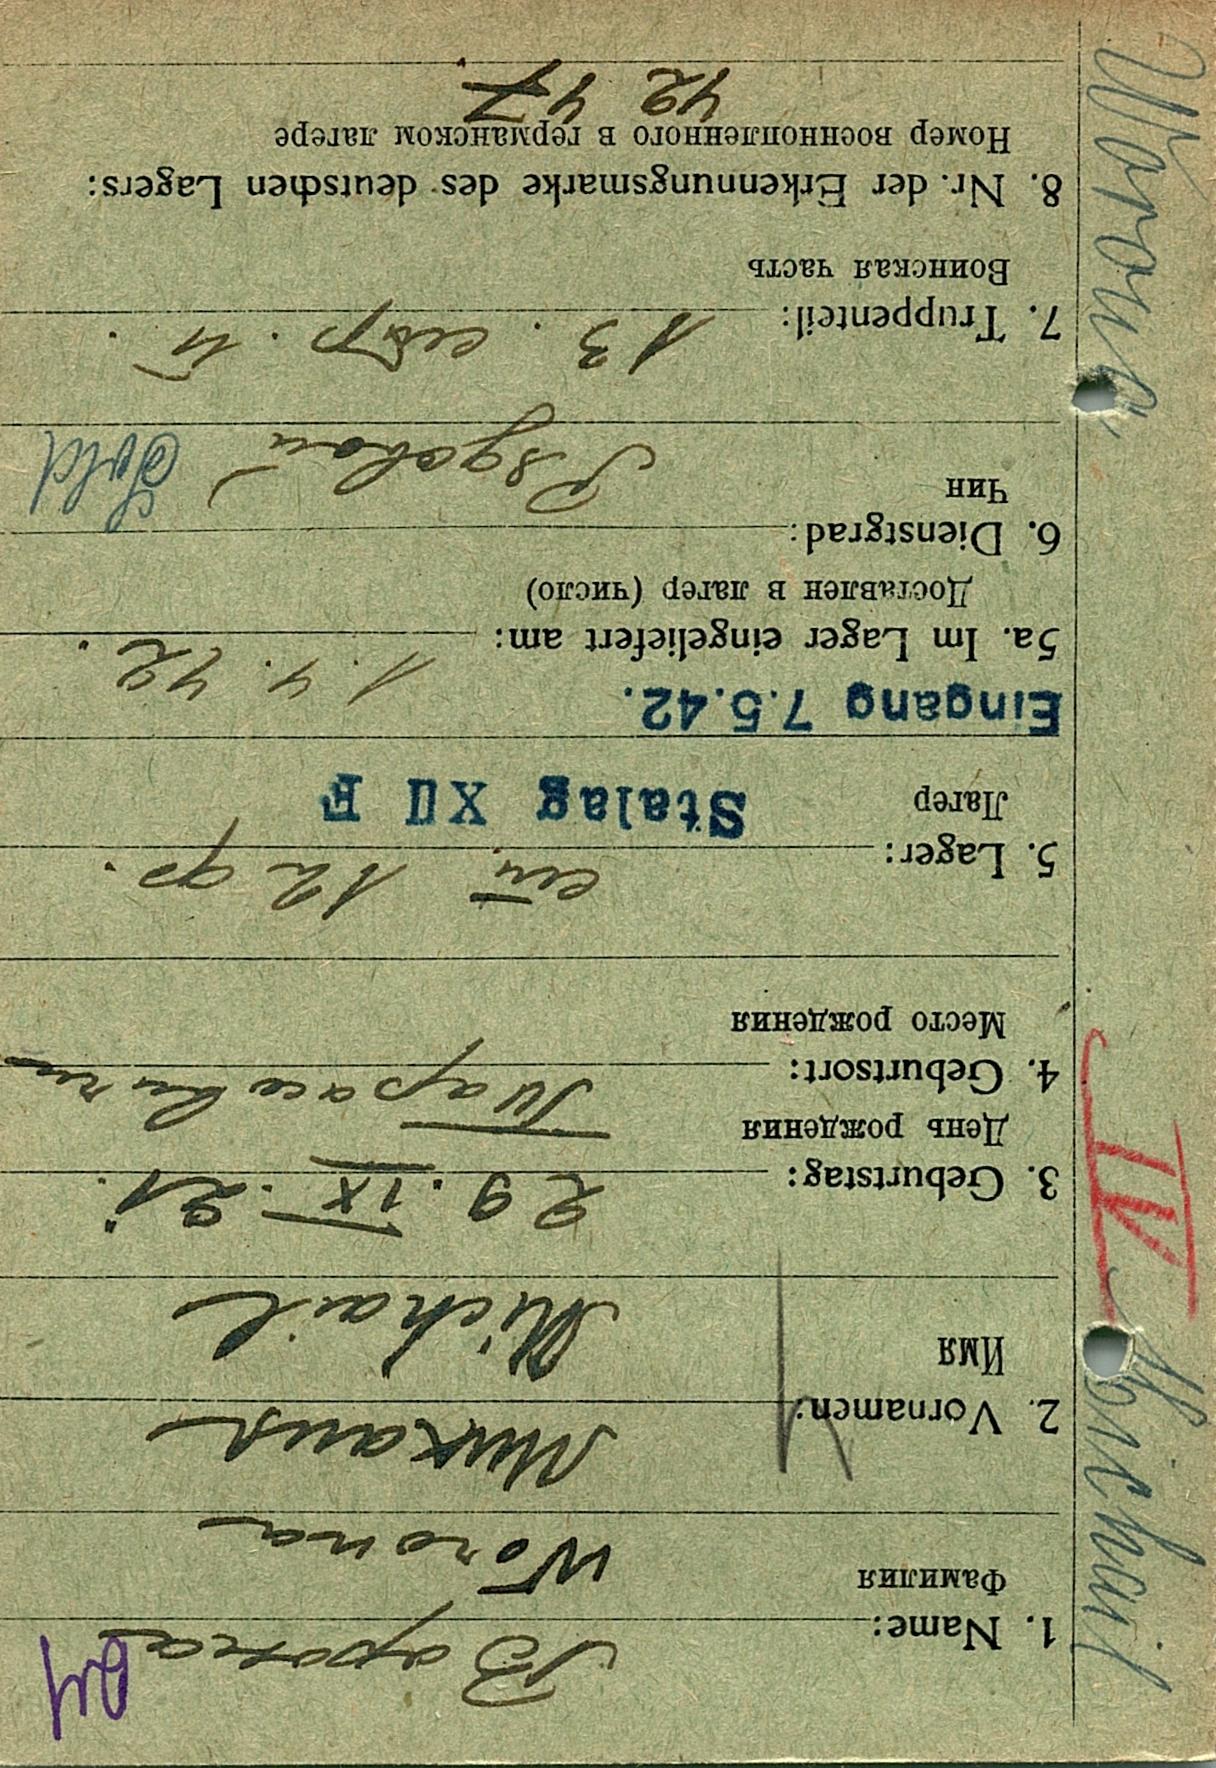 Worona, Michail
IV
1. Name: Варона
Фамилия
Worona
2. Vornamen: Михаил
Имя
Michail
3. Geburtstag: 29. IX. 21.
День рождения
4. Geburtsort:
Место рождения
5. Lager: 12 ф.
Лагер
Stalag XII F
Eingang 7.5.42.
5a. Im Lager eingeliefert am: 1. 4. 42.
Доставлен в лагер (число)
6. Dienstgrad: Рядовой
Чин
Sold
7. Truppenteil: 13.
Воинская часть
8. Nr. der Erkennungsmarke des deutschen Lagers:
Номер военнопленного в германском лагере
42 47.